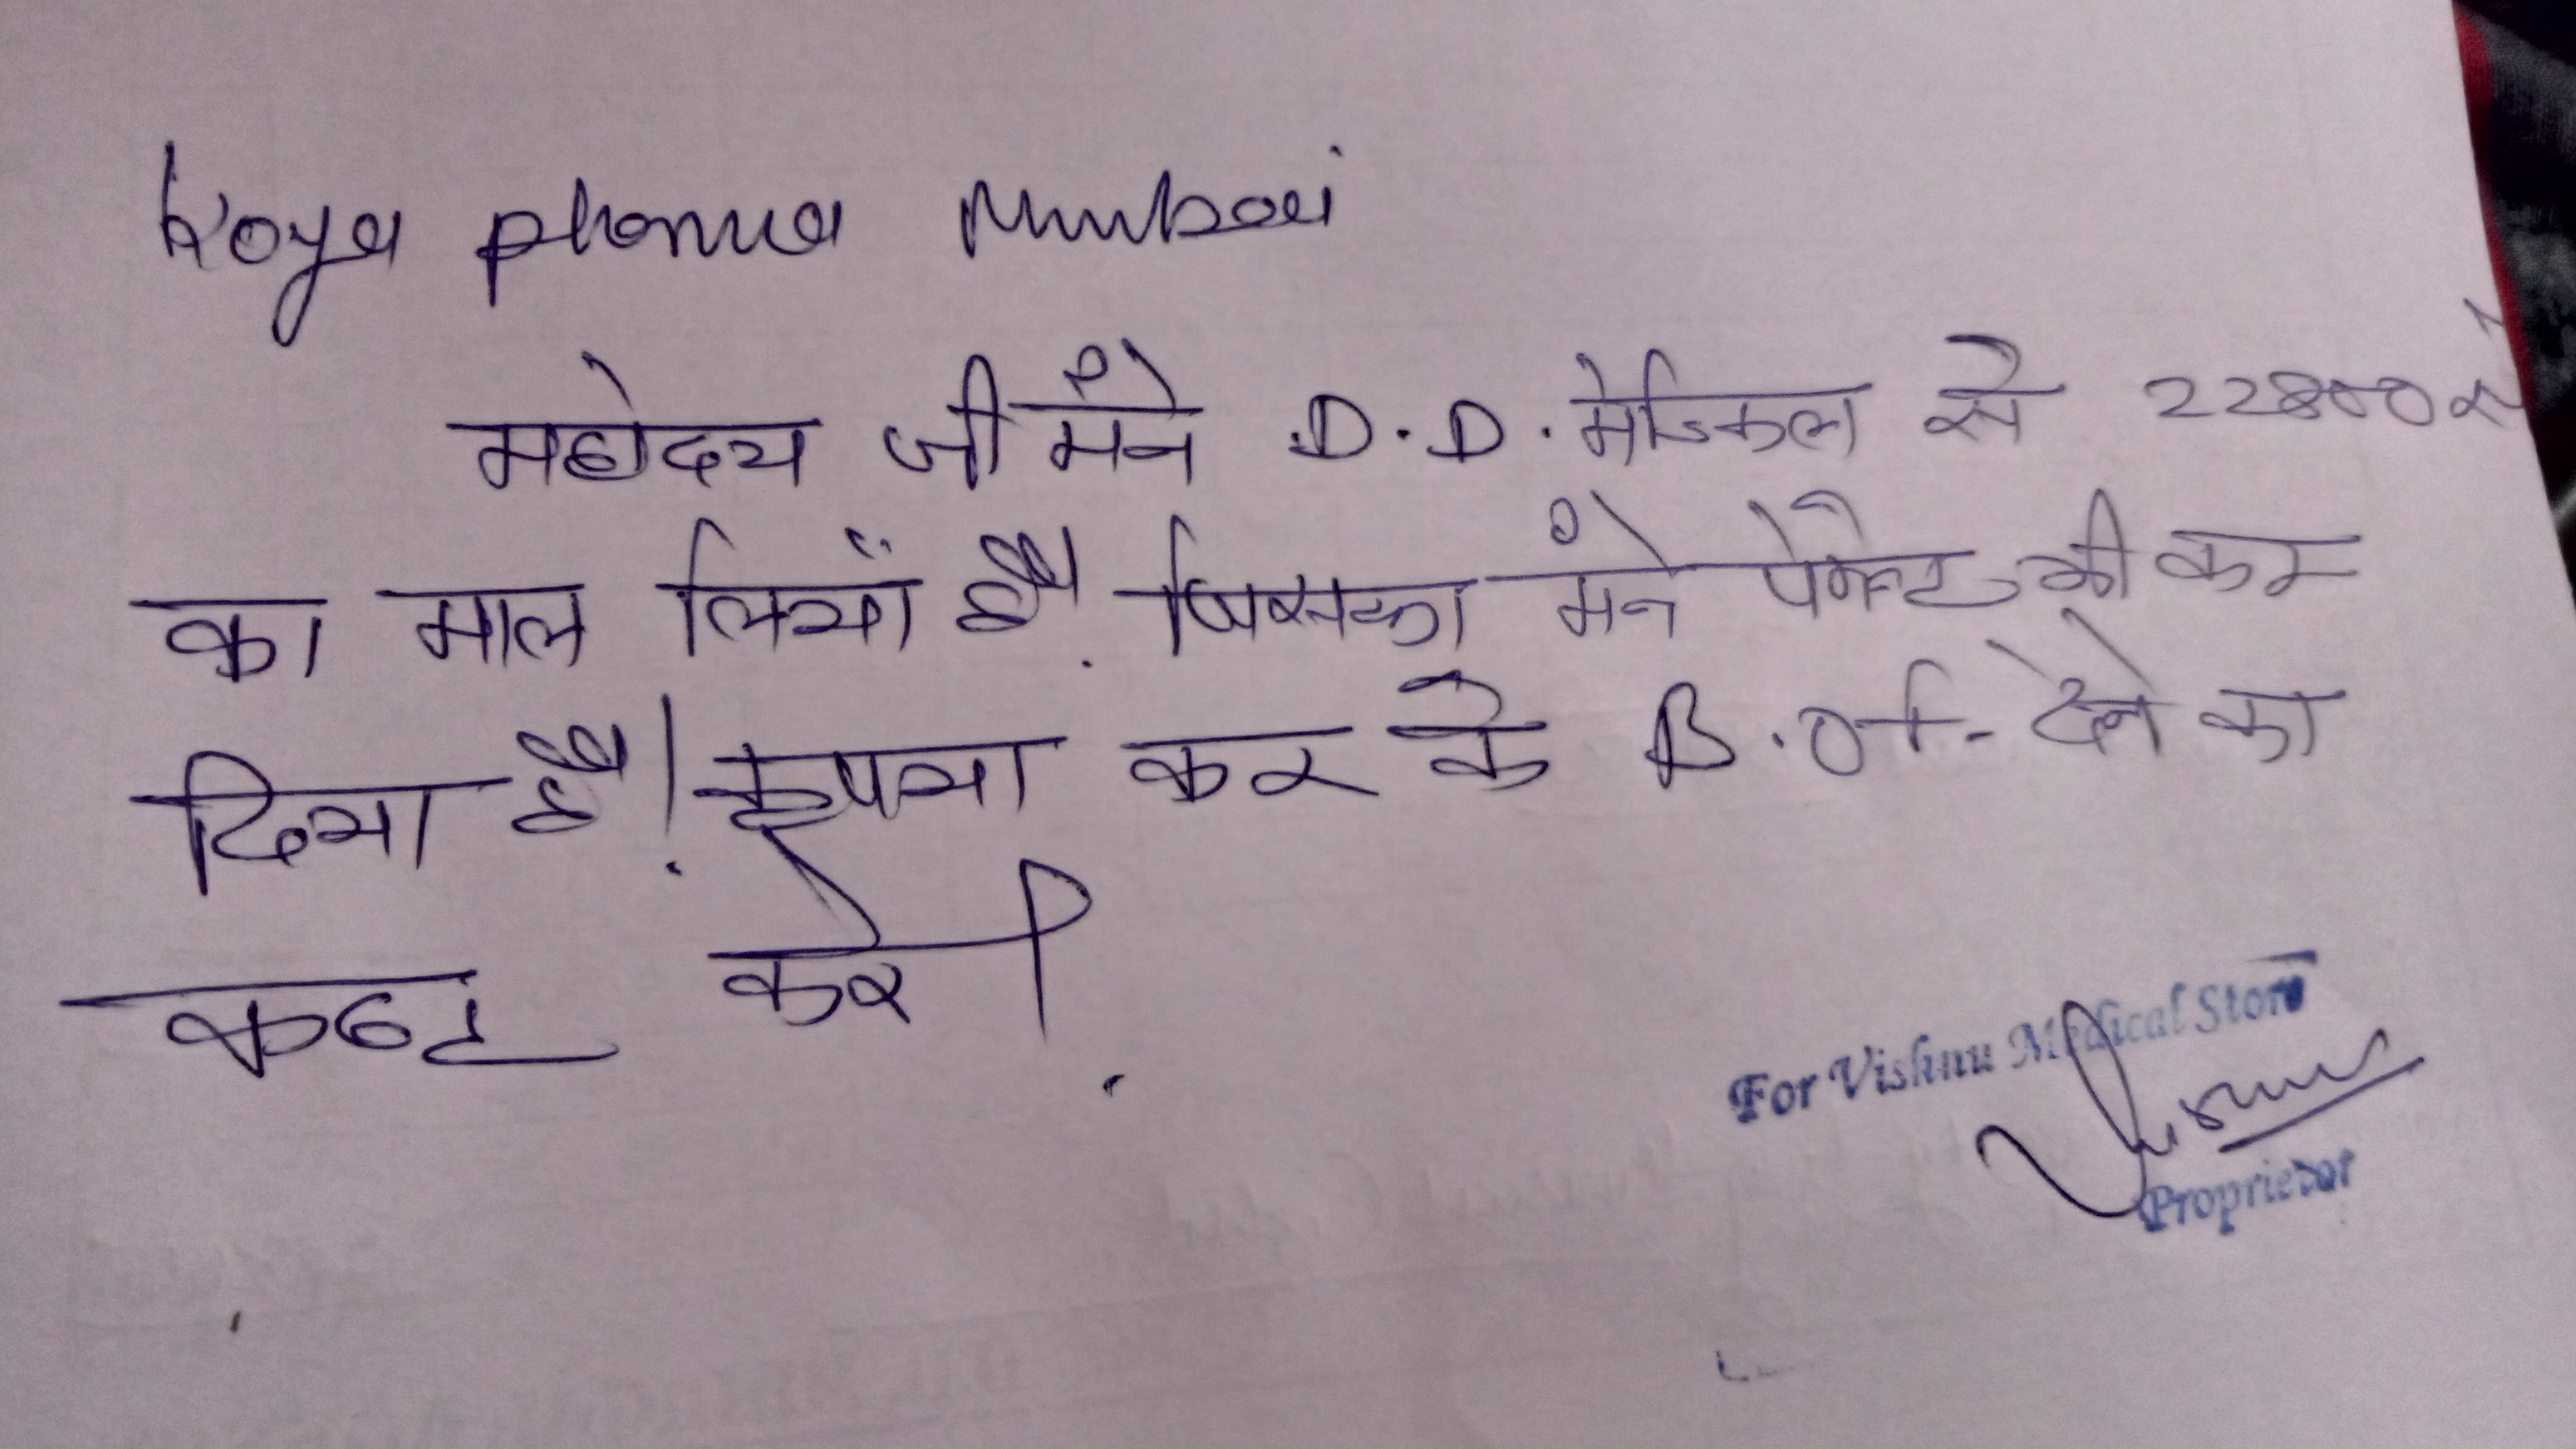 Koye pharma Mumbai
महोदय जी मैंने D.D. मेडिकल से 22800 रु
का माल लियाँ है! जिसका मैंने पेमेन्ट भी कर
दिया है! कृपया कर के B.of. देने का
कष्ट करे।
For Vishnu Medical Store
Proprietor